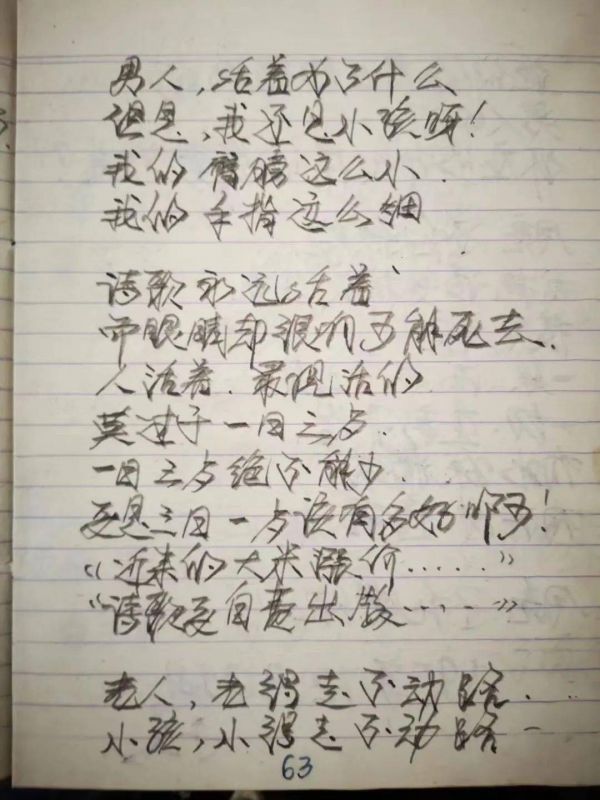 男人,活着为了什么
但是,我还是小孩呀!
我的臂膀这么小.
我的手指这么细
诗歌永远活着
而眼睛却很可能死去.
人活着.最 活的
莫过于一日三歺.
一日三歺绝不能少..
要是三日一歺该有多好啊!
《近来的大米涨价......》
“诗歌要自费出版....》
老人,老得走不动路.
小孩,小得走不动路-
63